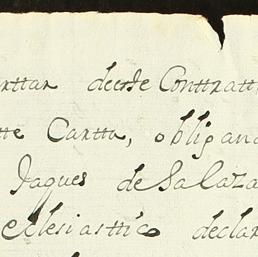 decste Conttratt
tte Cartta, obligand
Jaques de Salaza
eclesiasttico declar